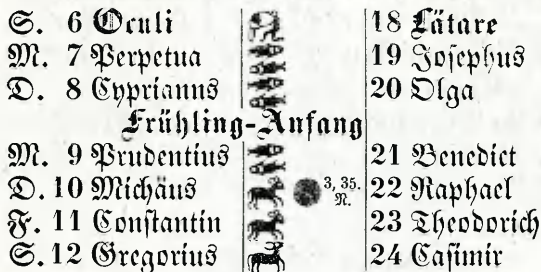 S. 6 Oculi 18 Lätare
M. 7 Perpetua 19 Josephus
D. 8 Cyprianus 20 Olga
Frühling-Anfang
M. 9 Prudentius 21 Benedict
D. 10 Michäus 3, 35. N. 22 Raphael
F. 11 Constantin 23 Theodorich
S. 12 Gregorius 24 Casimir